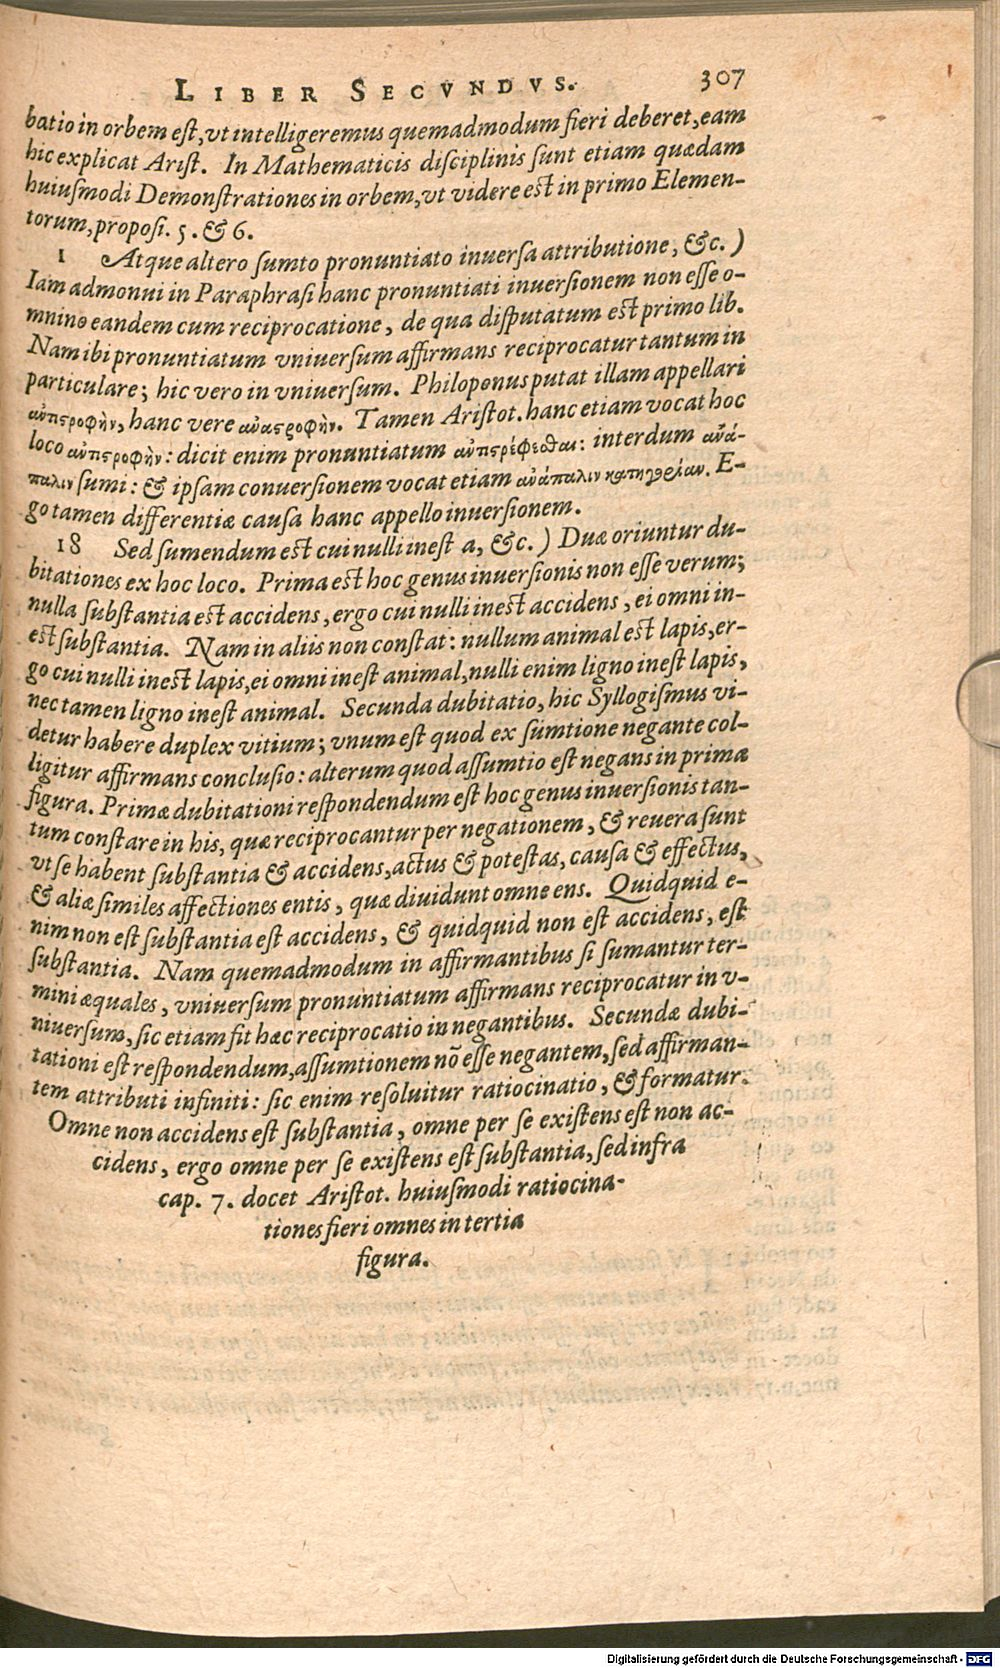 LIBER SECVNDVS. 307
batio in orbem est, vt intelligeremus quemadmodum fieri deberet, eam
hic explicat Arist. In Mathematicis disciplinis sunt etiam quædam
huiusmodi Demonstrationes in orbem, vt videre est in primo Elemen-
torum, proposi. 5. & 6.
1 Atque altero sumto pronuntiato inuersa attributione, &c.)
Iam admonui in Paraphrasi hanc pronuntiati inuersionem non esse o-
mnino eandem cum reciprocatione, de qua disputatum est primo lib.
Nam ibi pronuntiatum vniuersum affirmans reciprocatur tantum in
particulare; hic vero in vniuersum. Philoponus putat illam appellari
ἀντιστροφὴν, hanc vere ἀναστροφὴν. Tamen Aristot. hanc etiam vocat hoc
loco ἀντιστροφὴν: dicit enim pronuntiatum ἀντιστρέφεσθαι: interdum ἀνά-
παλιν sumi: & ipsam conuersionem vocat etiam ἀνάπαλιν κατηγορίαν. E-
go tamen differentiæ causa hanc appello inuersionem.
18 Sed sumendum est cui nulli inest a, &c.) Duæ oriuntur du-
bitationes ex hoc loco. Prima est hoc genus inuersionis non esse verum;
nulla substantia est accidens, ergo cui nulli inest accidens, ei omni in-
est substantia. Nam in aliis non constat: nullum animal est lapis, er-
go cui nulli inest lapis, ei omni inest animal, nulli enim ligno inest lapis,
nec tamen ligno inest animal. Secunda dubitatio, hic Syllogismus vi-
detur habere duplex vitium; vnum est quod ex sumtione negante col-
ligitur affirmans conclusio: alterum quod assumtio est negans in prima
figura. Primæ dubitationi respondendum est hoc genus inuersionis tan-
tum constare in his, quæ reciprocantur per negationem, & reuera sunt
vt se habent substantia & accidens, actus & potestas, causa & effectus,
& aliæ similes affectiones entis, quæ diuidunt omne ens. Quidquid e-
nim non est substantia est accidens, & quidquid non est accidens, est
substantia. Nam quemadmodum in affirmantibus si sumantur ter-
mini æquales, vniuersum pronuntiatum affirmans reciprocatur in v-
niuersum, sic etiam fit hæc reciprocatio in negantibus. Secundæ dubi-
tationi est respondendum, assumtionem nō esse negantem, sed affirman-
tem attributi infiniti: sic enim resoluitur ratiocinatio, & formatur.
Omne non accidens est substantia, omne per se existens est non ac-
cidens, ergo omne per se existens est substantia, sed infra
cap. 7. docet Aristot. huiusmodi ratiocina-
tiones fieri omnes in tertia
figura.
Digitalisierung gefördert durch die Deutsche Forschungsgemeinschaft - DFG